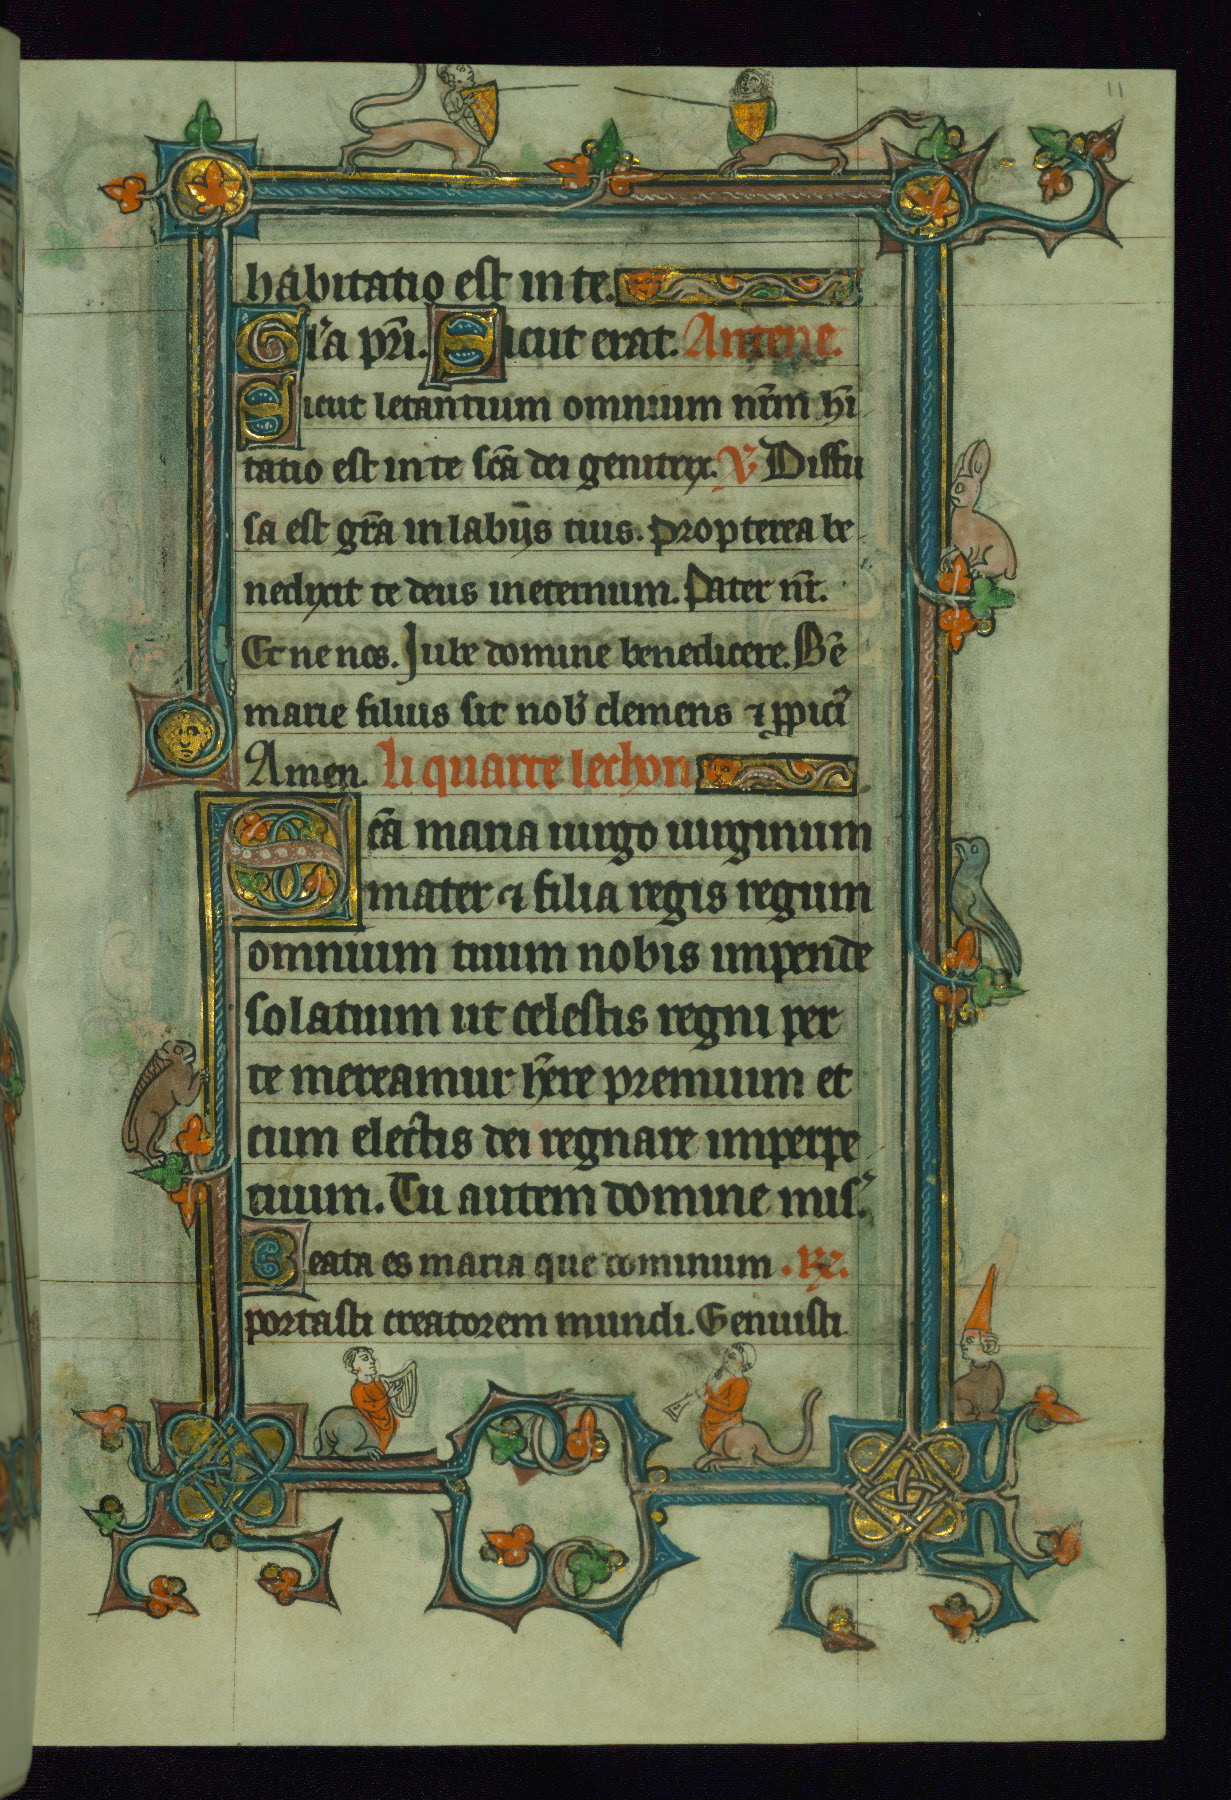 11
habitatio est in te.
Gl'a pr̄i. Sicut erat. Antene.
Sicut letantium omnium nr̄m h̄i
tatio est in te sc̄a dei genitrix. V̷ Diffu
sa est gr̄a in labijs tuis. propterea be
nedixit te deus in eternum. Pater nr̄.
Et ne nos. Jube domine benedicere. Bn̄e
marie filius sit nob' clemens ⁊ ꝓpici'
Amen. li quarte lechon
Sc̄a maria uirgo uirginum
mater ⁊ filia regis regum
omnium tuum nobis impende
solatium ut celestis regni per
te mereamur h̄ere premium et
cum electis dei regnare imperpe
tuum. Tu autem domine mis'.
Beata es maria que dominum . R̷.
portasti creatorem mundi. Genuisti